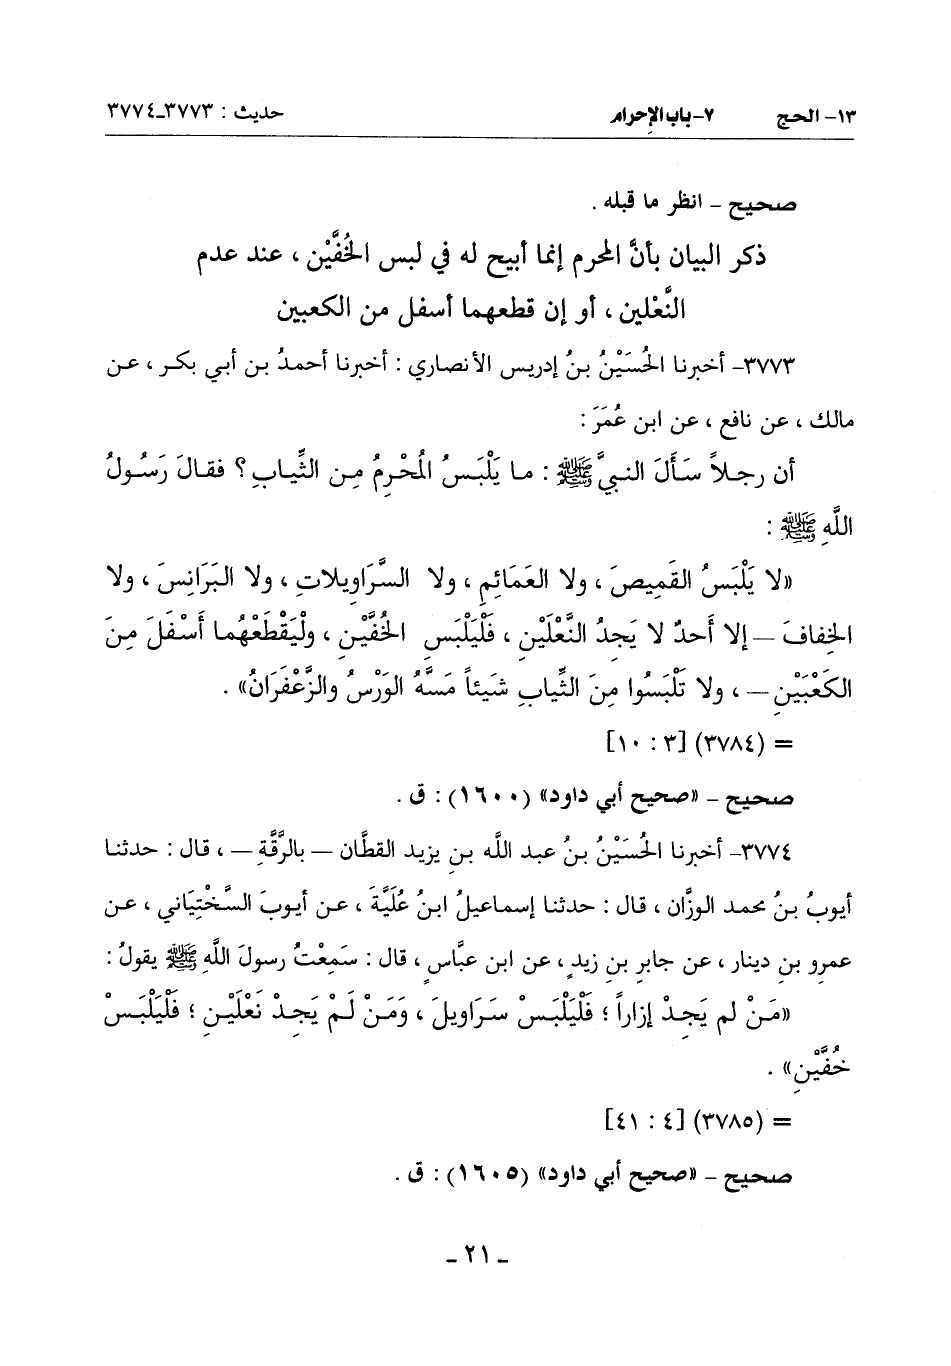 ١٣- الحج ٧-باب الإحرام حديث : ٣٧٧٣ـ٣٧٧٤
صحيح - انظر ما قبله .
ذكر البيان بأنَّ المحرم إنما أبيح له في لبس الخُفَّيْن ، عند عدم
النَّعْلين ، أو إن قطعهما أسفل من الكعبين
٣٧٧٣- أخبرنا الحُسَيْنُ بنُ إدريس الأنصاري : أخبرنا أحمدُ بن أبي بكر ، عن
مالك ، عن نافع ، عن ابن عُمَرَ :
أن رجلاً سَأَلَ النبيَّ ﷺ : ما يَلْبَسُ المُحْرِمُ مِن الثِّيابِ ؟ فقالَ رَسُولُ
اللَّهِ ﷺ :
«لا يَلْبَسُ القَمِيصَ ، ولا العَمَائِمِ ، ولا السَّرَاوِيلاتِ ، ولا البَرَانِسَ ، ولا
الخِفافَ — إلا أَحدٌ لا يَجِدُ النَّعْلَيْنِ ، فَلْيَلْبَسِ الخُفَّيْنِ ، ولْيَقْطَعْهُما أَسْفَلَ مِنَ
الكَعْبَيْنِ — ، ولا تَلْبَسُوا مِنَ الثِّيابِ شَيئاً مَسَّهُ الوَرْسُ والزَّعْفَرَانُ» .
= (٣٧٨٤) [٣ : ١٠]
صحيح - «صحيح أبي داود» (١٦٠٠) : ق .
٣٧٧٤- أخبرنا الحُسَيْنُ بنُ عبد اللَّه بنِ يزيد القطَّان — بالرَّقَّةِ — ، قال : حدثنا
أيوبُ بنُ محمد الوزَّان ، قال : حدثنا إسماعيلُ ابنُ عُلَيَّةَ ، عن أيوبَ السَّخْتِيَاني ، عن
عمرو بن دينار ، عن جابر بنِ زيدٍ ، عن ابن عبَّاسٍ ، قال : سَمِعْتُ رسولَ اللَّهِ ﷺ يقولُ :
«مَنْ لم يَجِدْ إزاراً ؛ فَلْيَلْبَسْ سَرَاويلَ ، وَمَنْ لَمْ يَجِدْ نَعْلَيْنِ ؛ فَلْيَلْبَسْ
خُفَّيْنِ» .
= (٣٧٨٥) [٤ : ٤١]
صحيح - «صحيح أبي داود» (١٦٠٥) : ق .
ـ ٢١ ـ